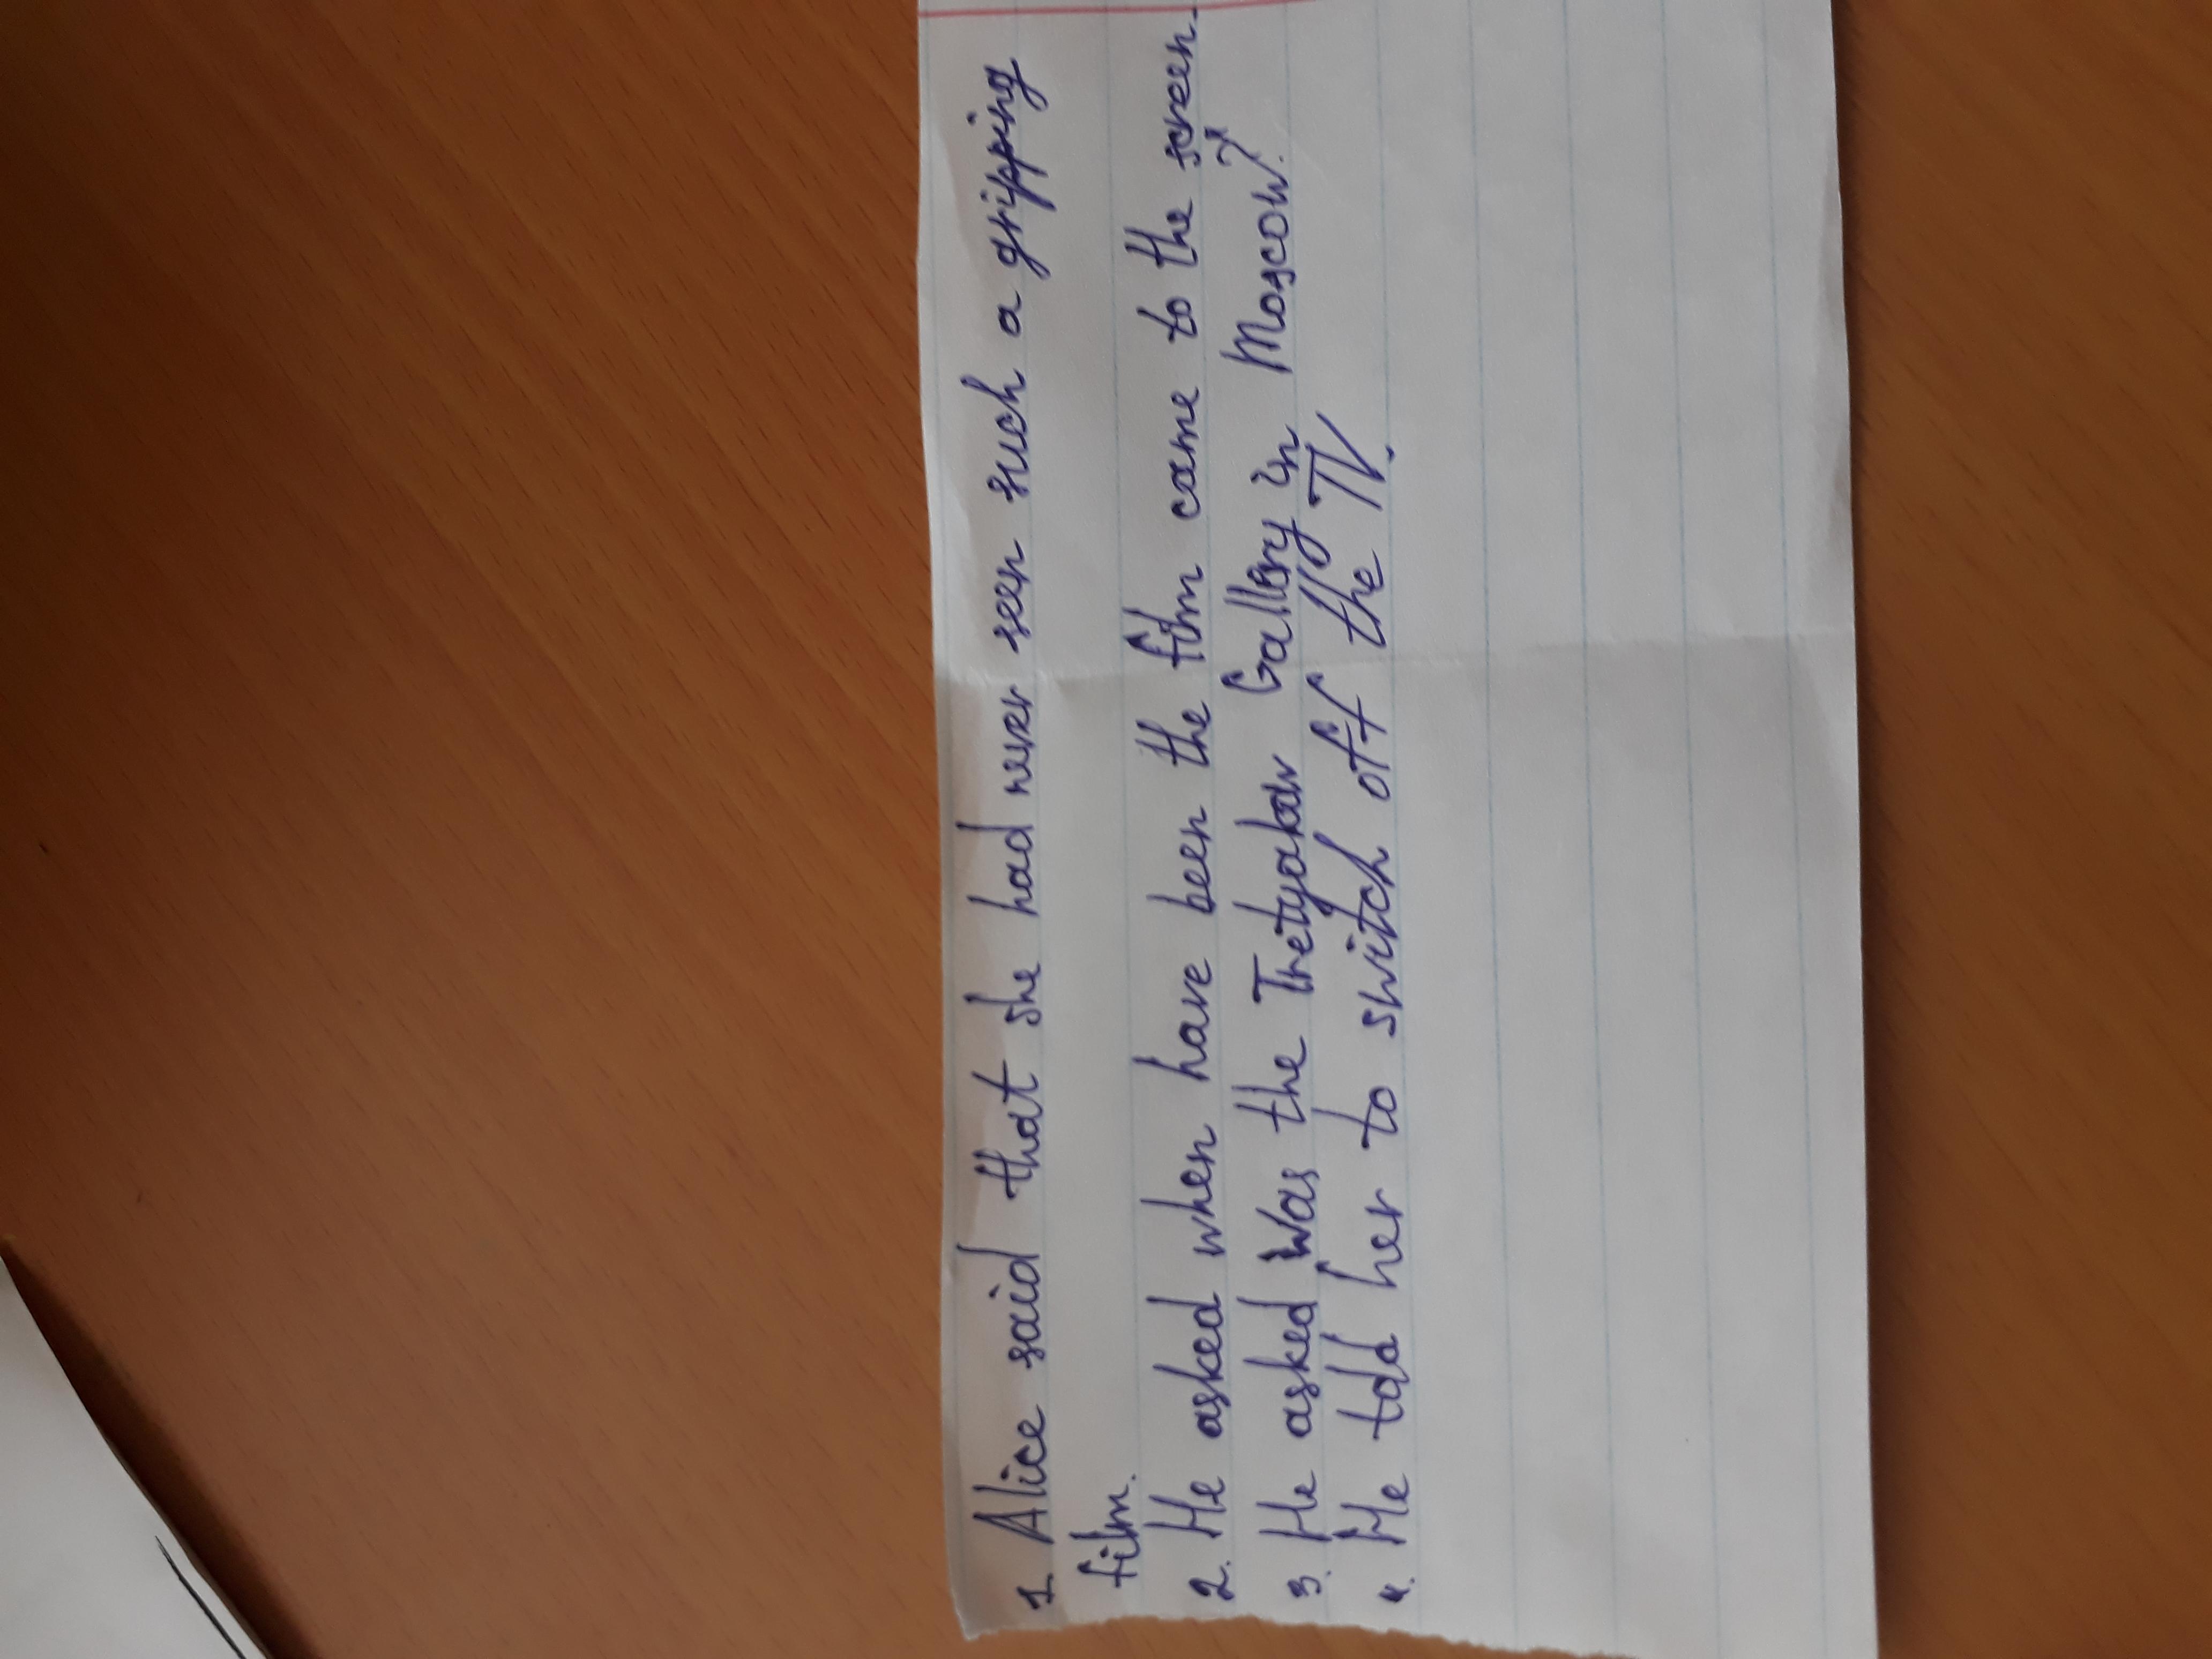 1. Alice said that she had never seen such a gripping
film.
2. He asked when have been the film came to the screen.
3. He asked was the Tretyakov Gallery in Moscow?"
4. He told her to switch off the TV.